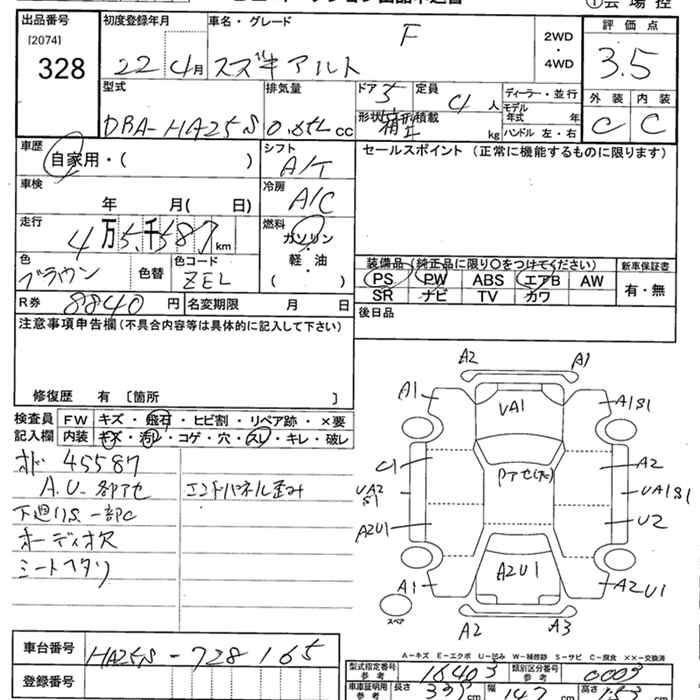 出品番号 [2074] 328
初度登録年月 22年4月
車名・グレード スズキ アルト F
2WD・4WD
評価点 3.5
外装 C 内装 C
型式 DBA-HA25S
排気量 0.65L cc
ドア 5 形状 箱型
定員 人
積載 kg
ディーラー・並行
モデル年式 年
ハンドル 左・右
車歴 自家用・( )
シフト A/T
セールスポイント (正常に機能するものに限ります)
車検 年 月( 日)
冷房 A/C
走行 4万5千587km
燃料 ガソリン・軽・油 ( )
色 ブラウン 色替
色コード ZEL
装備品 (純正品に限り〇をつけてください)
PS PW ABS エアB AW
SR ナビ TV カワ
新車保証書 有・無
R券 8840円 名変期限 月 日
後日品
注意事項申告欄(不具合内容等は具体的に記入して下さい)
修復歴 有 〔箇所 〕
検査員記入欄
FW キズ・飛石・ヒビ割・リペア跡・×要
内装 キズ・汚れ・コゲ・穴・スレ・キレ・破レ
オド 45587
A.U.各アセ エンドパネル歪み
下廻りS一部C
オーディオ穴
シートヘタリ
A2 A1
A1 VA1 A1S1
C1 A2
UA2 S1 UA1S1
A2U1 U2
A1 A2U1 A2U1
スペア A2 A3
A-キズ E-エクボ U-凹み W-補修跡 S-サビ C-腐食 ××-交換済
車台番号 HA25S-728165
登録番号
型式指定番号 参考 16403
類別区分番号 参考 0003
車庫証明用 参考 長さ 339cm 幅 147 高さ 153